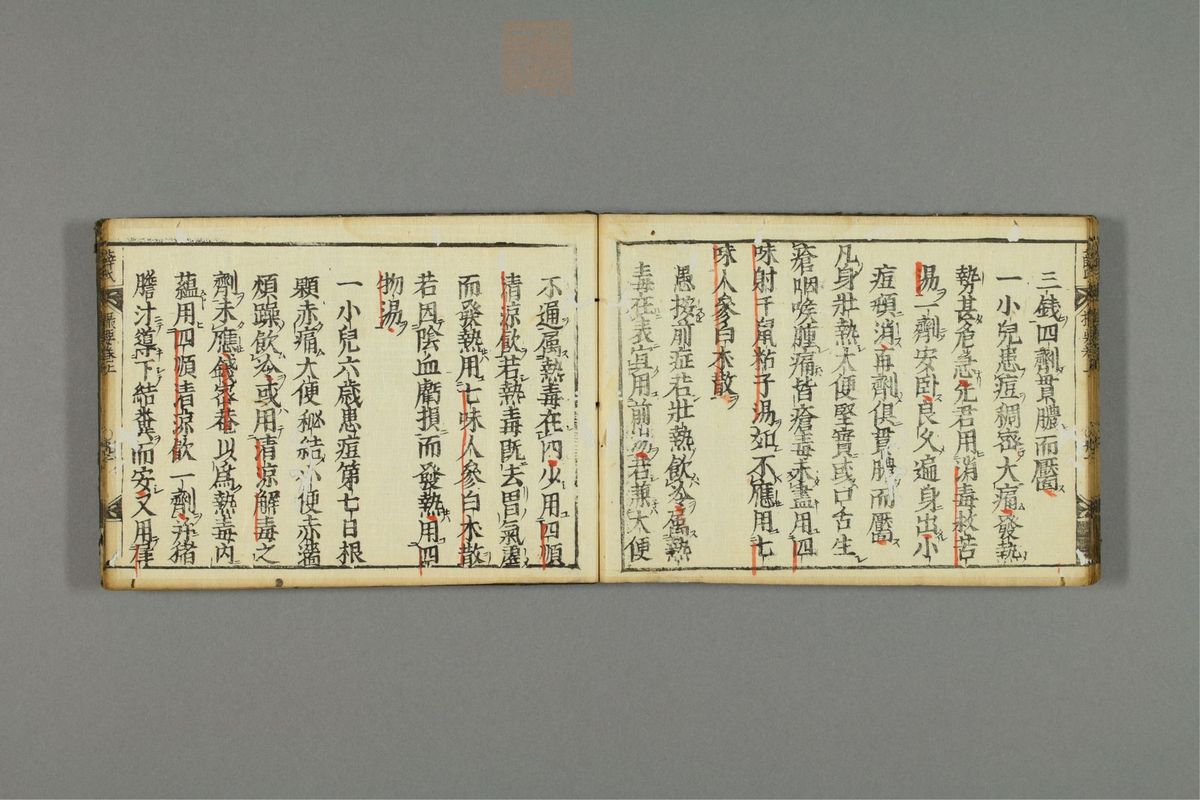 三錢四劑貫膿而靨
一小兒患痘稠密大痛發熱
勢甚危急先君用消毒救苦
湯一劑安臥良久遍身出小
痘頓消再劑俱貫膿而靨
凡身壯熱大便堅實或口舌生
瘡咽喉腫痛皆瘡毒未盡用四
味射干鼠粘子湯如不應用七
味人參白朮散
愚按前症若壯熱飲冷爲熱
毒在表宜用前湯若兼大便
不通属熱毒在内少用四順
清涼飲若熱毒既去胃氣虛
而發熱用七味人參白朮散
若因陰血虧損而發熱用四
物湯
一小兒六歲患痘第七日根
顆赤痛大便秘結小便赤濇
煩躁飲冷或用清涼解毒之
劑未應錢密菴以爲熱毒内
蘊用四順清涼飲一劑并猪
膽汁導下結糞而安又用犀